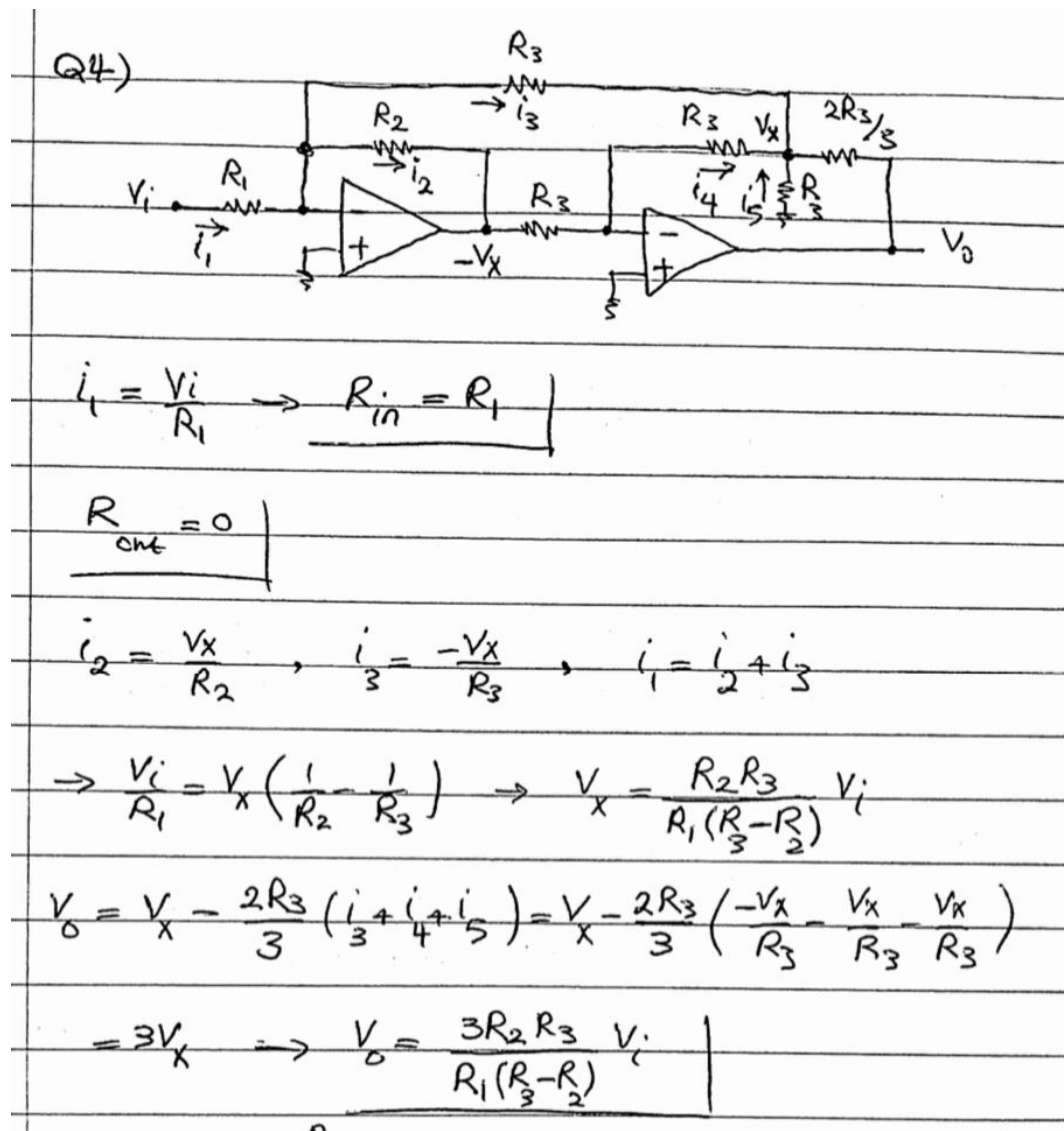 Q4)
R3
i3
R2
i2
R3
Vx
2R3/3
Vi
R1
i1
R3
i4
i5
R3
−
+
-Vx
−
+
Vo
i1 = Vi/R1 → Rin = R1
Rout = 0
i2 = Vx/R2 , i3 = -Vx/R3 , i1 = i2 + i3
→ Vi/R1 = Vx (1/R2 - 1/R3) → Vx = R2 R3 / R1 (R3 - R2) Vi
Vo = Vx - 2R3/3 (i3 + i4 + i5) = Vx - 2R3/3 (-Vx/R3 - Vx/R3 - Vx/R3)
= 3Vx → Vo = 3R2 R3 / R1 (R3 - R2) Vi